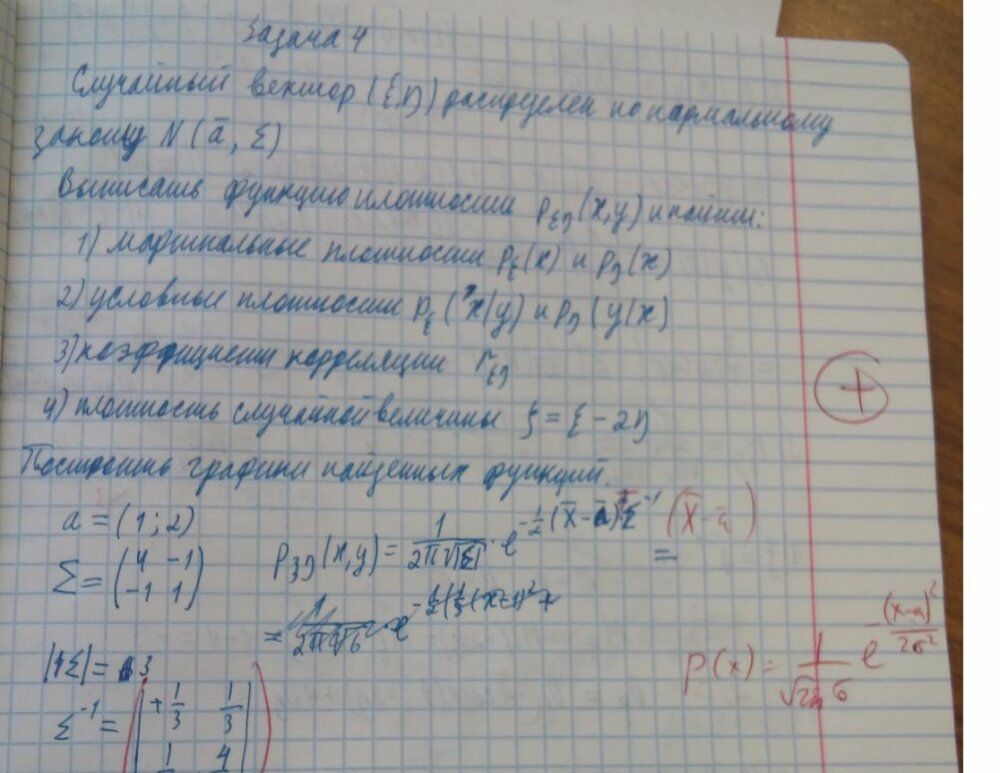 Задача 4
Случайный вектор (ξ,η) распределен по нормальному
закону N(ā, Σ)
Выписать функцию плотности p_{ξη}(x,y) и найти:
1) маргинальные плотности p_ξ(x) и p_η(x)
2) условные плотности p_ξ(x|y) и p_η(y|x)
3) коэффициент корреляции r_{ξη}
4) плотность случайной величины ζ = ξ - 2η
Построить графики найденных функций.
a = (1; 2)
Σ = (4 -1
-1 1)
p_{ξη}(x,y) = 1/(2π√|Σ|) · e^{-1/2 (x̄-ā)^T Σ^{-1} (x̄-ā)} =
|Σ| = 3
Σ^{-1} = (+1/3 1/3
1 4
p(x) = 1/(√2π σ) e^{-(x-a)²/2σ²}
+